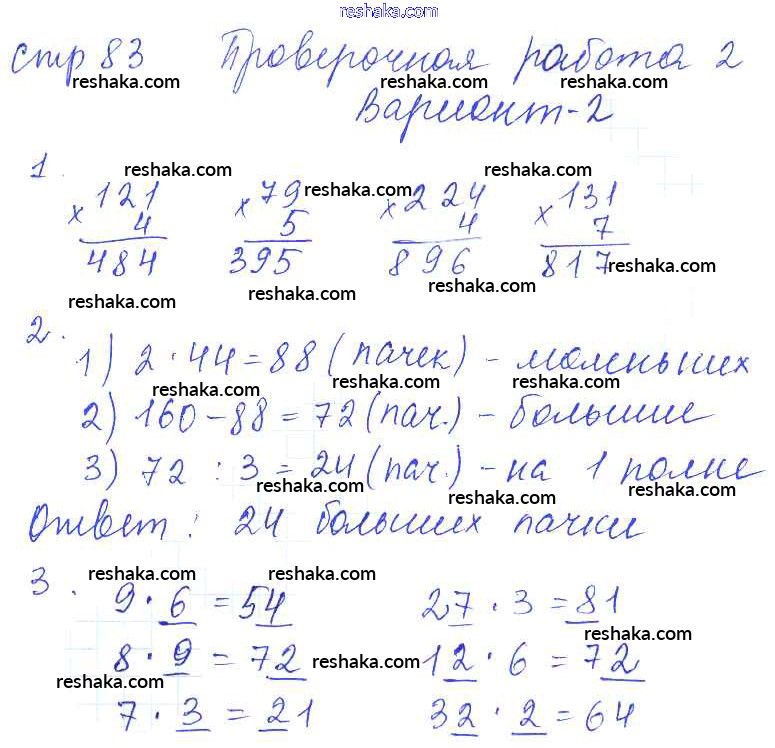 reshaka.com
стр 83 Проверочная работа 2
reshaka.com reshaka.com reshaka.com reshaka.com
Вариант-2
1. reshaka.com reshaka.com reshaka.com
× 121 × 79 × 224 × 131
4 5 4 7
484 395 896 817 reshaka.com
reshaka.com reshaka.com reshaka.com
2.
1) 2 · 44 = 88 (пачек) - маленьких
reshaka.com reshaka.com reshaka.com
2) 160 - 88 = 72 (пач.) - большие
3) 72 : 3 = 24 (пач.) - на 1 полке
reshaka.com reshaka.com
Ответ: 24 больших пачки
3. reshaka.com reshaka.com reshaka.com
9 · 6 = 54 27 · 3 = 81
reshaka.com
8 · 9 = 72 reshaka.com 12 · 6 = 72
reshaka.com reshaka.com
7 · 3 = 21 32 · 2 = 64